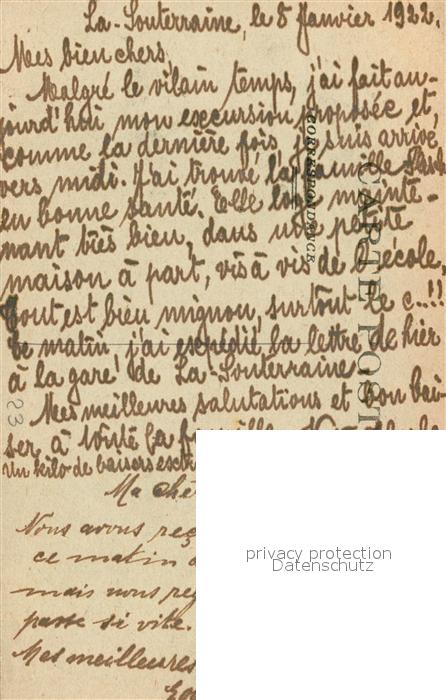 La-Souterraine, le 8 Janvier 1922.
Mes bien chers,
Malgré le vilain temps, j'ai fait au-
jourd'hui mon excursion proposée et,
comme la dernière fois, je suis arrivé
vers midi. J'ai trouvé la famille
en bonne santé. Elle loge mainte-
nant très bien, dans une petite
maison à part, vis à vis de l'école,
tout est bien mignon, surtout le c...!!
Ce matin, j'ai expédié la lettre de hier
à la gare de La-Souterraine
Mes meilleures salutations et bon bai-
ser à toute la famille.
Un kilo de baisers
Ma
Nous avons
ce matin
mais nous
passe si vite.
Mes meilleures
CARTE POST
CORRESPONDANCE
23
privacy protection
Datenschutz